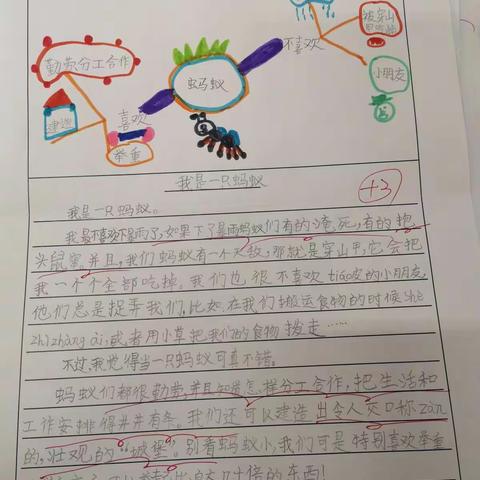 勤劳分工合作
建造
喜欢
举重
蚂蚁
不喜欢
被穿山甲
小朋友
我是一只蚂蚁
+3
我是一只蚂蚁。
我最不喜欢下雨了,如果下了暴雨蚂蚁们有的淹死,有的抱
头鼠窜。并且,我们蚂蚁有一个天敌,那就是穿山甲,它会把
我一个个全部吃掉。我们也很不喜欢tiáo皮的小朋友,
他们总是捉弄我们,比如,在我们搬运食物的时候shè
zhìzhàng ài,或者用小草把我们的食物拨走……
不过,我觉得当一只蚂蚁可真不错。
蚂蚁们都很勤劳,并且知道怎样分工合作,把生活和
工作安排得井井有条。我们还可以建造出令人交口称zàn
的,壮观的“城堡”。别看蚂蚁小,我们可是特别喜欢举重
倍的东西!